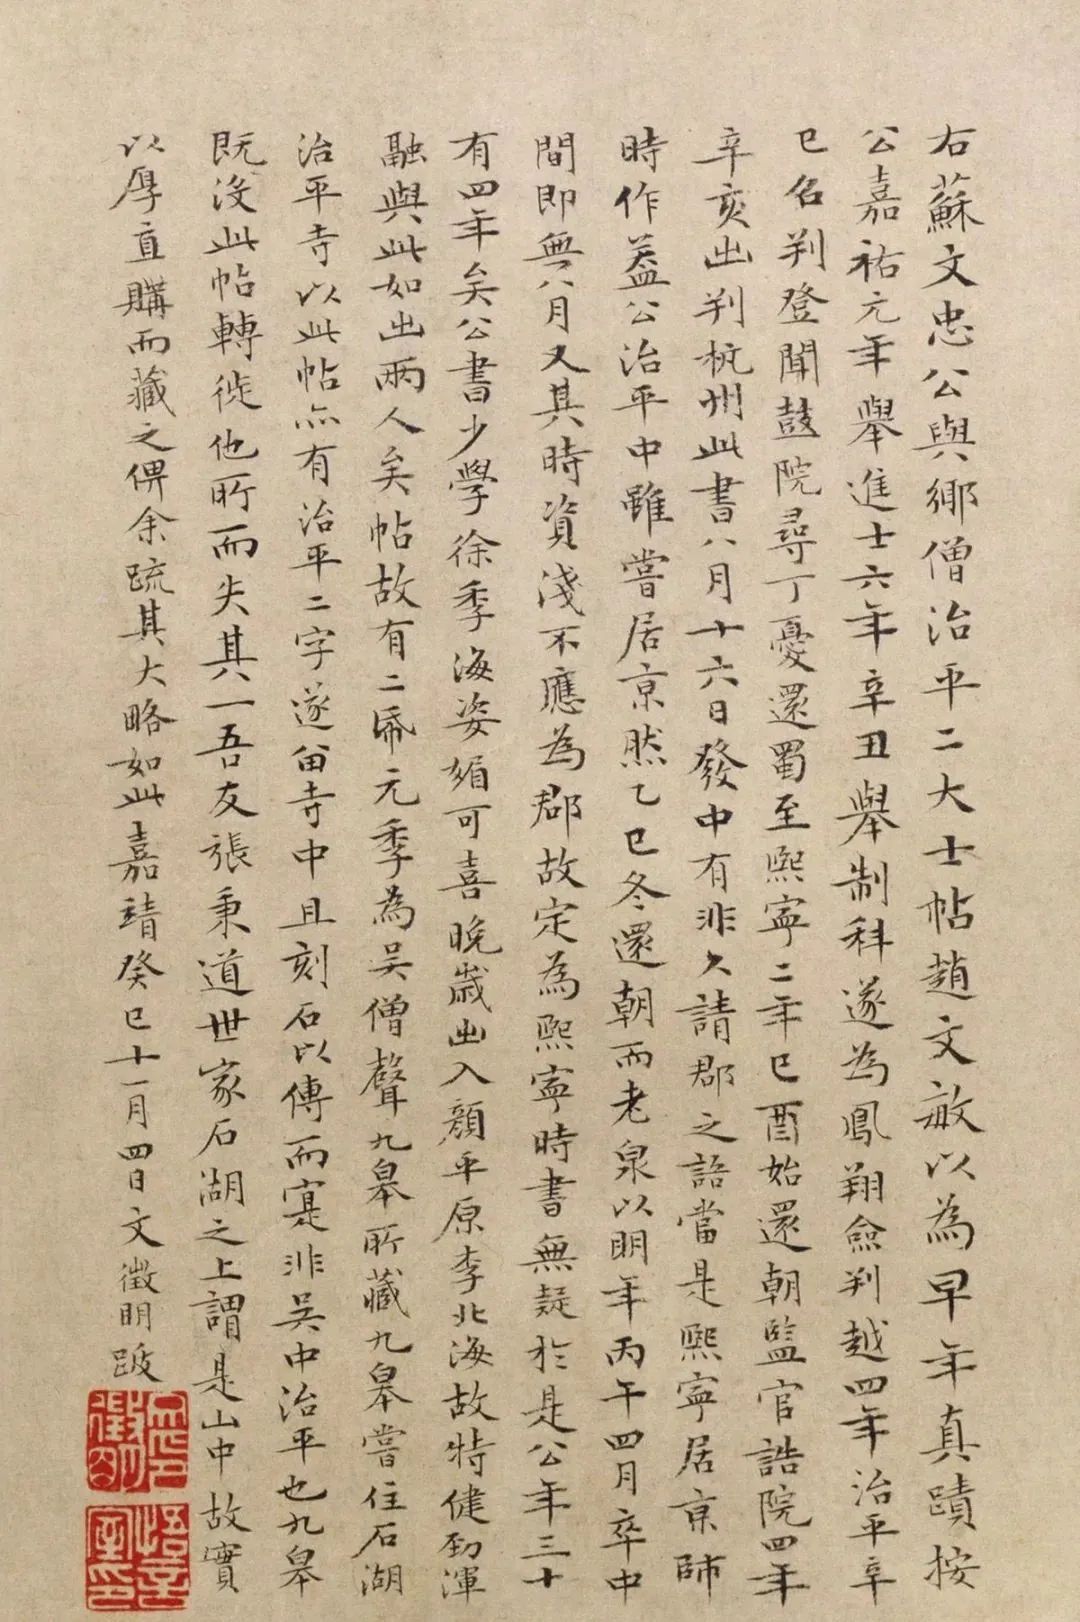 右蘇文忠公與鄉僧治平二大士帖趙文敏以為早年真蹟按
公嘉祐元年舉進士六年辛丑舉制科遂為鳳翔僉判越四年治平辛
巳召判登聞鼓院尋丁憂還蜀至熙寧二年已酉始還朝監官誥院四年
辛亥出判杭州此書八月十六日發中有非久請郡之語當是熙寧居京師
時作蓋公治平中雖嘗居京然乙巳冬還朝而老泉以明年丙午四月卒中
間即無八月又其時資淺不應為郡故定為熙寧時書無疑於是公年三十
有四年矣公書少學徐季海姿媚可喜晚歲出入顏平原李北海故特健勁渾
融與此如出兩人矣帖故有二帋元季為吳僧聲九皋所藏九皋嘗住石湖
治平寺以此帖亦有治平二字遂留寺中且刻石以傳而寔非吳中治平也九皋
既沒此帖轉徙他所而失其一吾友張秉道世家石湖之上謂是山中故實
以厚直購而藏之俾余疏其大略如此嘉靖癸巳十一月四日文徵明跋
文徵明印
悟言室印